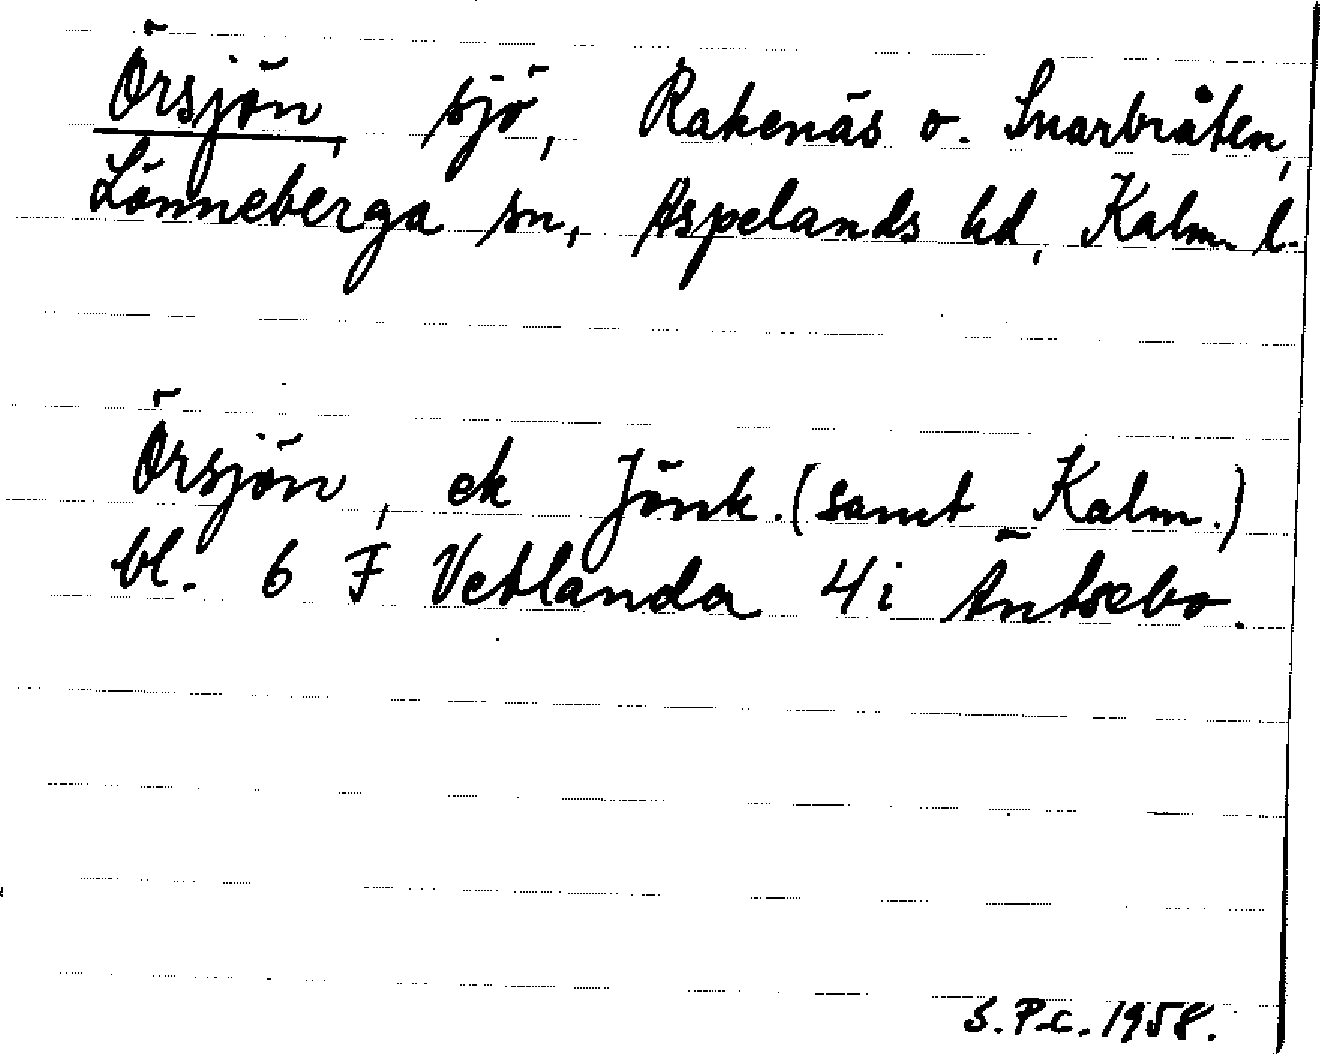 Örsjön, sjö, Rakenäs o. Snarbråten,
Lönneberga sn, Aspelands hd, Kalm. l.
Örsjön, ek Jönk. (samt Kalm.)
bl. 6 F Vetlanda 4i Äntsebo.
S.P-c. 1958.